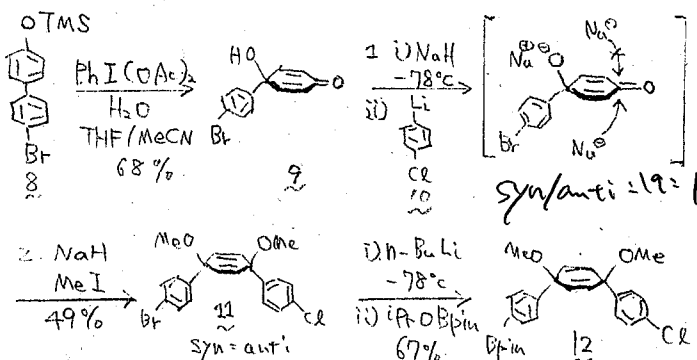 OTMS
Br
8
PhI(OAc)₂
H₂O
THF/MeCN
68%
HO
O
Br
9
1. i) NaH
-78°C
ii) Li
Cl
10
Na⊕ ⊖O
Nu⊖
O
Br
Nu⊖
syn/anti = 19 = 1
2. NaH
MeI
49%
MeO
OMe
Br
11
Cl
syn = anti
i) n-BuLi
-78°C
ii) iPrOBpin
67%
MeO
OMe
Bpin
12
Cl